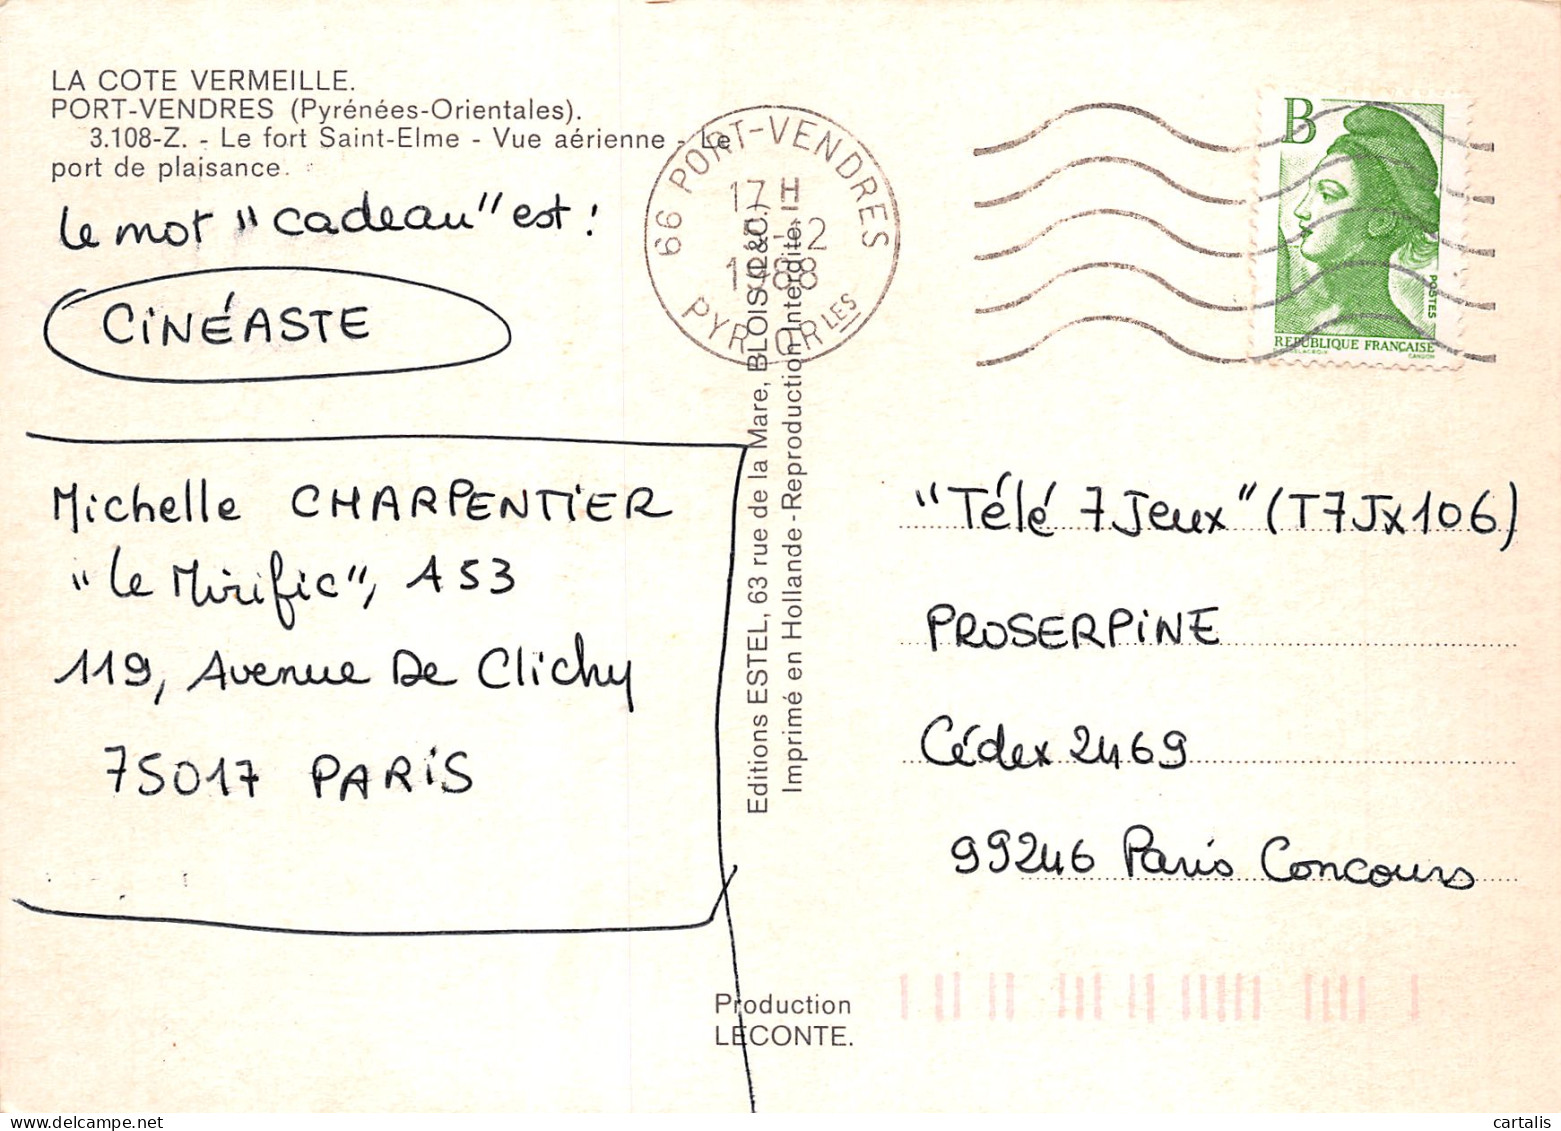 LA COTE VERMEILLE.
PORT-VENDRES (Pyrénées-Orientales).
3.108-Z. - Le fort Saint-Elme - Vue aérienne - Le
port de plaisance.
Le mot "cadeau" est !
CINÉASTE
Michelle CHARPENTIER
"Le Mirific", A53
119, Avenue De Clichy
75017 PARIS
66 PORT-VENDRES
17 H
-2
1988
PYR. OR LES
Editions ESTEL, 63 rue de la Mare, BLOIS (L.&C.)
Imprimé en Hollande - Reproduction Interdite.
Production
LECONTE.
B
POSTES
REPUBLIQUE FRANÇAISE
DELACROIX GANDON
"Télé 7 Jeux" (T7Jx106)
PROSERPINE
Cédex 2469
99246 Paris Concours
cartalis